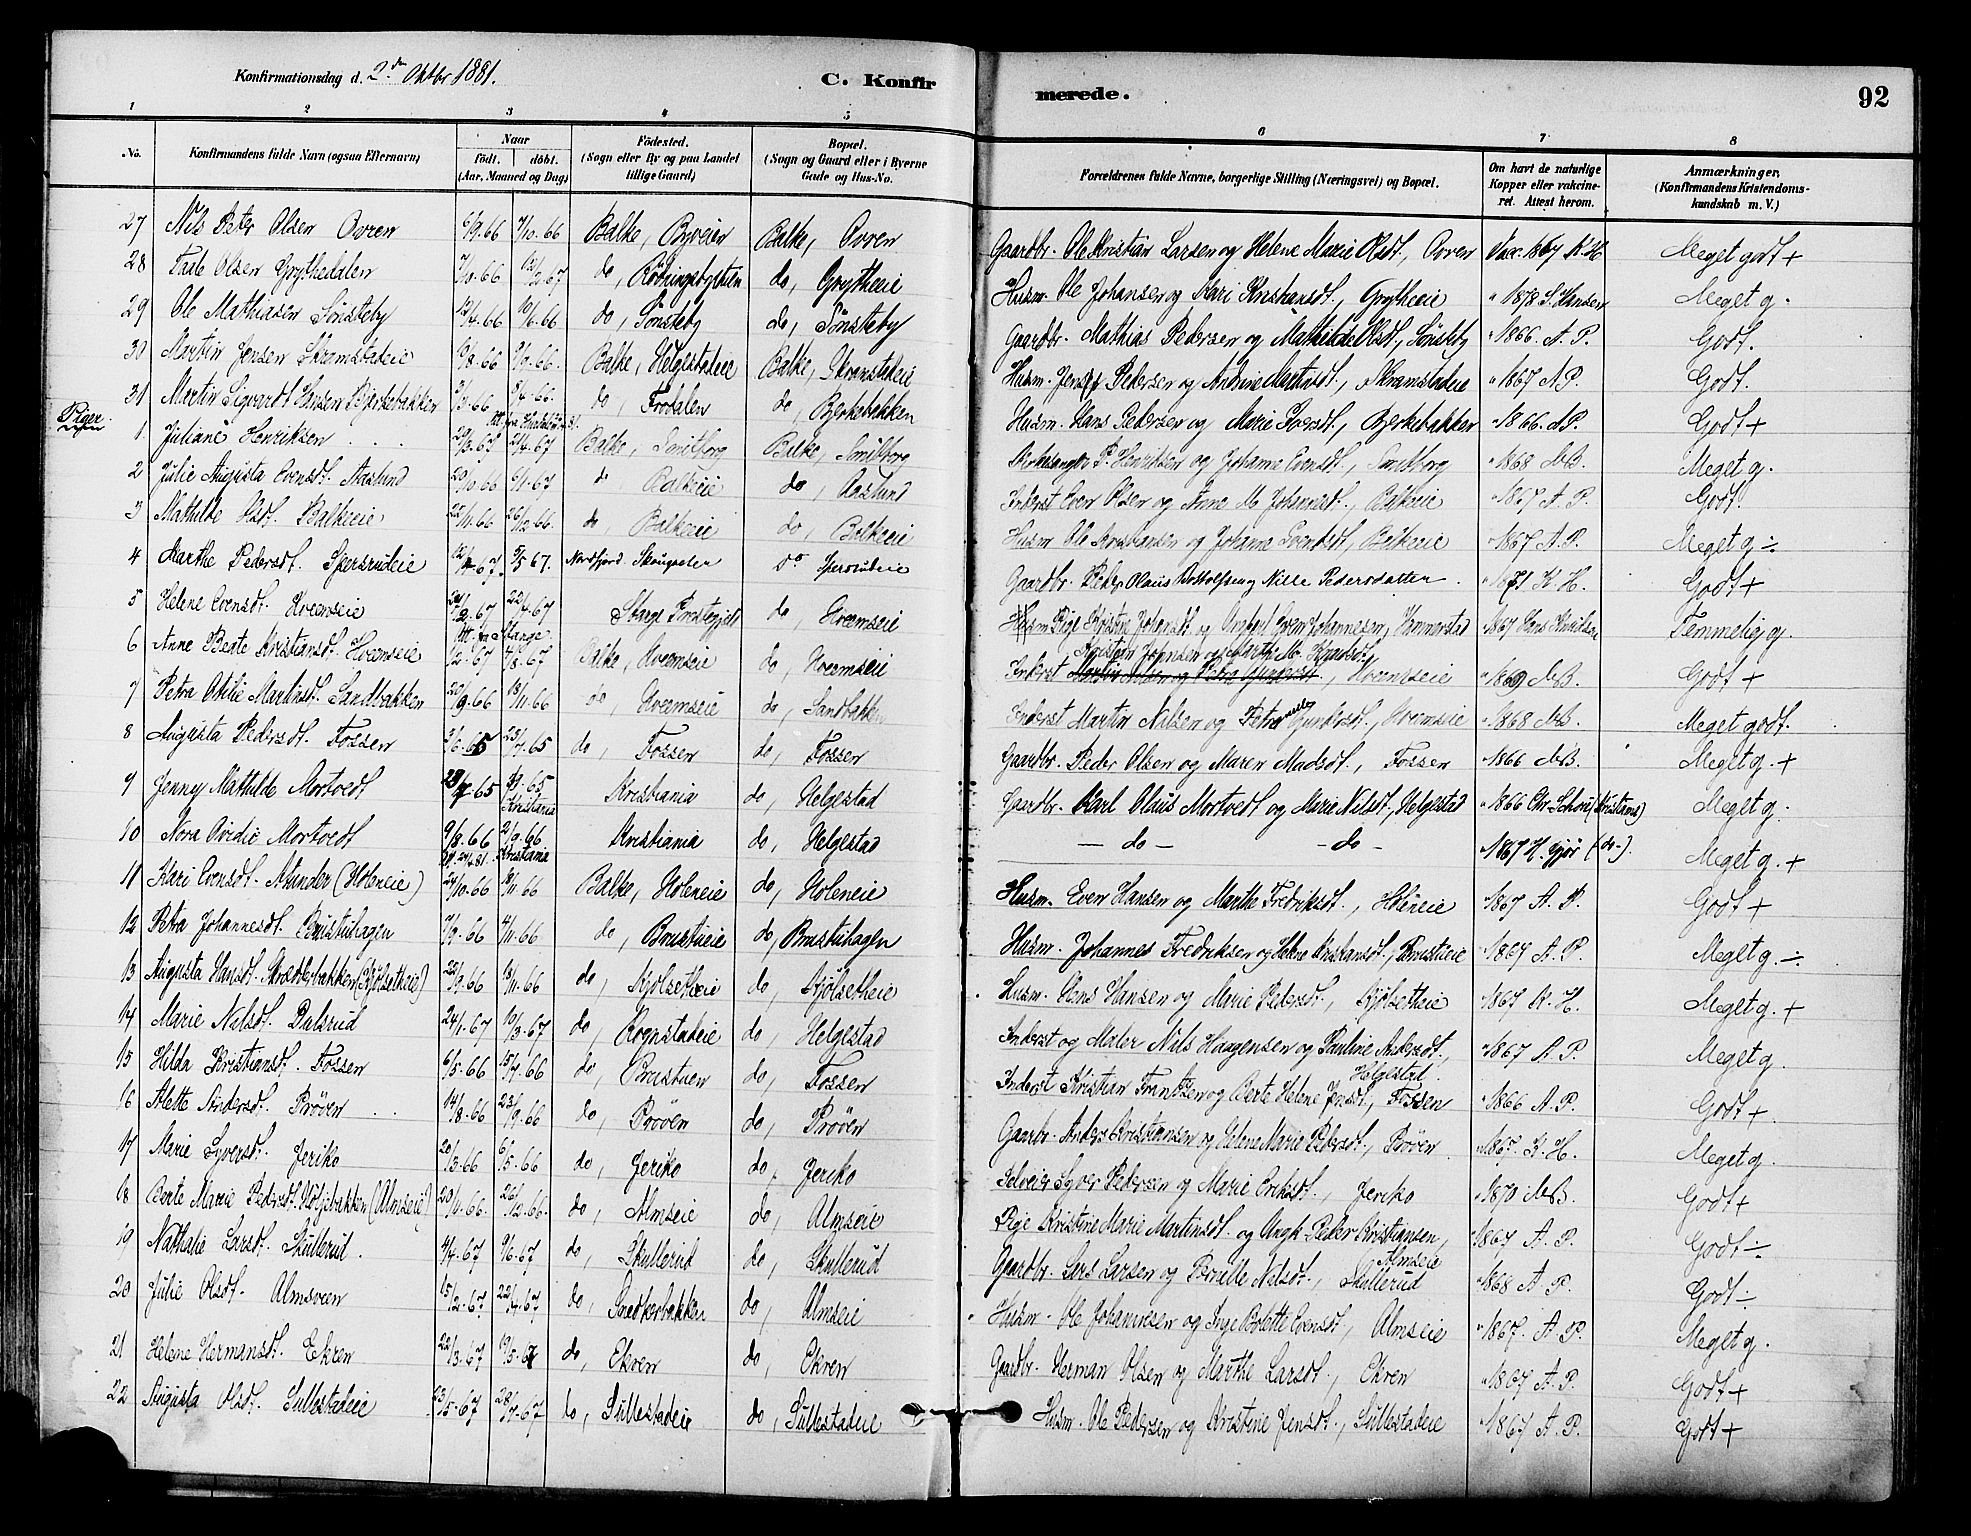 Konfirmationsdag d. 2den Oktbr 1881.
C. Konfirmerede.
92
1 2 3 4 5 6 7 8
No.
Konfirmandens fulde Navn (ogsaa Efternavn)
Naar
födt. döbt.
(Aar, Maaned og Dag)
Födested.
(Sogn eller By og paa Landet tillige Gaard)
Bopæl.
(Sogn og Gaard eller i Byerne Gade og Hus-No.
Forældrenes fulde Navne, borgerlige Stilling (Næringsvei) og Bopæl.
Om havt de naturlige Kopper eller vakcineret. Attest herom.
Anmærkninger,
(Konfirmandens Kristendomskundskab m. V.)
27 Nils Peter Olsen Ovren 6/9.66 7/10.66 Balke, Balke, Ovren Gaardbr. Ole Kristian Larsen og Helene Marie Olsdt., Ovren Vac. 1867 K. H. Meget godt +
28 Olsen Grythedalen 7/10.66 2.67 do, do, Grytheeie Husm. Ole Johansen og Kari Kristiansdt., Grytheeie " 1878 S. Hansen Meget g.
29 Ole Mathiasen Sönsteby 12/4.66 10/6.66 do, Sönsteby do, Sönsteby Gaardbr. Mathias Pedersen og Mathilde Olsdt., Sönsteby " 1866 A. P. Godt.
30 Martin Jensen Skramstadeie 13/8.66 9/9.66. Balke, Helgestadeie Balke, Skramstadeie Husm. Jens Pedersen og Andrine Martinsdt., Skramstadeie " 1867 A P. Godt.
31 Martin Sigvardt Hansen Bjerkebakken 3/3.66 8/4.66. do, Frodalen do, Bjerkebakken Husm. Hans Pedersen og Marie Iversdt., Bjerkebakken " 1866. A P. Godt +
Piger.
1. Juliane Henriksen 29/3.67 21/4.67 Balke, Smitborg Balke, Smitborg Kirkesanger P. Henriksen og Johanne Evensdt., Smitborg " 1868 M B. Meget g.
2 Julie Augusta Evensdt. Aaslund 20/10.66 6/1.67 do, Balkeeie do, Aaslund Inderst Even Olsen og Anne M. Johannesdt., Balkeeie " 1867 A. P. Godt.
3 Mathilde Olsdt. Balkeeie 25/11.66 26/12.66. do, Balkeeie do, Balkeeie Husm. Ole Kristiansen og Johanne Evensdt., Balkeeie " 1867 A. P. Meget g ÷
4 Marthe Pedersdt. Spersrudeie 12/4.67. 5/5 67. Nordfjord do Spersrudeie Gaardbr. Peder Olaus og Nille Pedersdatter. " 1871 K. H. Godt +
5 Helene Evensdt. Hveemseie 2.67 22/4.67 Stange Prestegjeld do, Hveemseie Pige Kristine Johansdt. og Ungkarl Even Johannesen, " 1867 Hans Temmelig g.
Att. fra Stange
6 Anne Beate Kristiansdt. Hveemseie 1/2.67 4/8.67 Balke, Hveemseie do, Hveemseie Inderst Kristian Johnsen og Marthe M. , Hveemseie " 1869 M B. Godt +
7 Petra Otilie Martinsdt. Sandbakken 20/9.66 18/11.66 do, Hveemseie do, Sandbakken Inderst Martin Nilsen og Petra Gundersdt., Hveemseie " 1868 M B. Meget godt.
8 Augusta Pedersdt. Fossen 3/6.65 23/7.65 do, Fossen do, Fossen Gaardbr. Peder Olsen og Maren Madsdt., Fossen " 1866 M B. Meget g. +
9 Jenny Mathilde Mortvedt 65 65 Kristiania Kristiania do, Helgestad Gaardbr. Karl Olaus Mortvedt og Marie Nilsdt., Helgestad " 1866 Chr. Schou (Kristiania) Meget g.
10 Nora Ovidie Mortvedt 9/8.66 2/9.66 Kristiania Kristiania do, Helgestad — do — — do — " 1867 H. Gjör (do-). Meget g. +
11 Kari Evensdt. (Holeneie) 24/10.66 18/11.66 Balke, Holeneie do, Holeneie Husm. Even Hansen og Marthe Fredriksdt., Holeneie " 1867 A. P. Godt +
12 Petra Johannesdt. Brustuhagen 7/9.66 4/11.66 do, Brustueie do, Brustuhagen Husm. Johannes Fredriksen og Helene Kristiansdt., Brustueie " 1867 A. P. Meget g. ÷
13 Augusta Hansdt. (Kjölsetheie) 22/9.66 18/11.66 do, Kjölsetheie do, Kjölsetheie Husm. Hans Hansen og Marie Pedersdt., Kjölsetheie " 1867 K. H. Meget g. +
14 Marie Nilsdt. Dalsrud 24/1.67 10/3.67 do, Rognstadeie do, Helgestad Inderst og Maler Nils Haagensen og Pauline Andersdt., Helgestad. " 1867 A P. Meget g.
15 Hilda Kristiansdt. Fossen 6/5.66 15/7.66 do, Brustuen do, Fossen Inderst Kristian Frantzen og Berte Helene Jensdt., Fossen " 1866 A. P. Godt +
16 Alette Andersdt. Pröven 14/8.66 23/9.66 do, Pröven do, Pröven Gaardbr. Anders Kristiansen og Helene Marie Pedersdt., Pröven " 1867. K. H. Meget g.
17 Marie Syversdt. Jeriko 20/3.66 6/5.66 do, Jeriko do, Jeriko Selveier Syver Pedersen og Marie Eriksdt., Jeriko " 1870 M B. Godt +
18 Berte Marie Pedersdt. (Almseie) 20/11.66. 26/12.66. do, Almseie do, Almseie Pige Kristine Marie Martinsdt. og Ungk. Peder Christiansen, Almseie " 1867 A. P. Godt ÷
19 Nathalie Larsdt. Skullerud. 4/4.67 9/6.67 do, Skullerud do, Skullerud Gaardbr. Lars Larsen og Nilsdt., Skullerud " 1868 A. P. Godt ÷
20 Julie Olsdt. Almsveen 15/2.67 22/4.67 do, Snedkerbakken do, Almseie Husm. Ole Johannesen og Inge Bolette Evensdt., Almseie " 1867. A. P. Meget g.
21 Helene Hermansdt. Ekren 22/3.67 19/5.67 do, Ekren do, Ekren Gaardbr. Herman Olsen og Marthe Larsdt., Ekren " 1867 A. P. Godt +
22 Augusta Olsdt. Sullestadeie 23/5.67 28/7.67 do, Sullestadeie do, Sullestadeie Husm. Ole Pedersen og Kristine Jensdt., Sullestadeie " 1867 A. P. Godt +